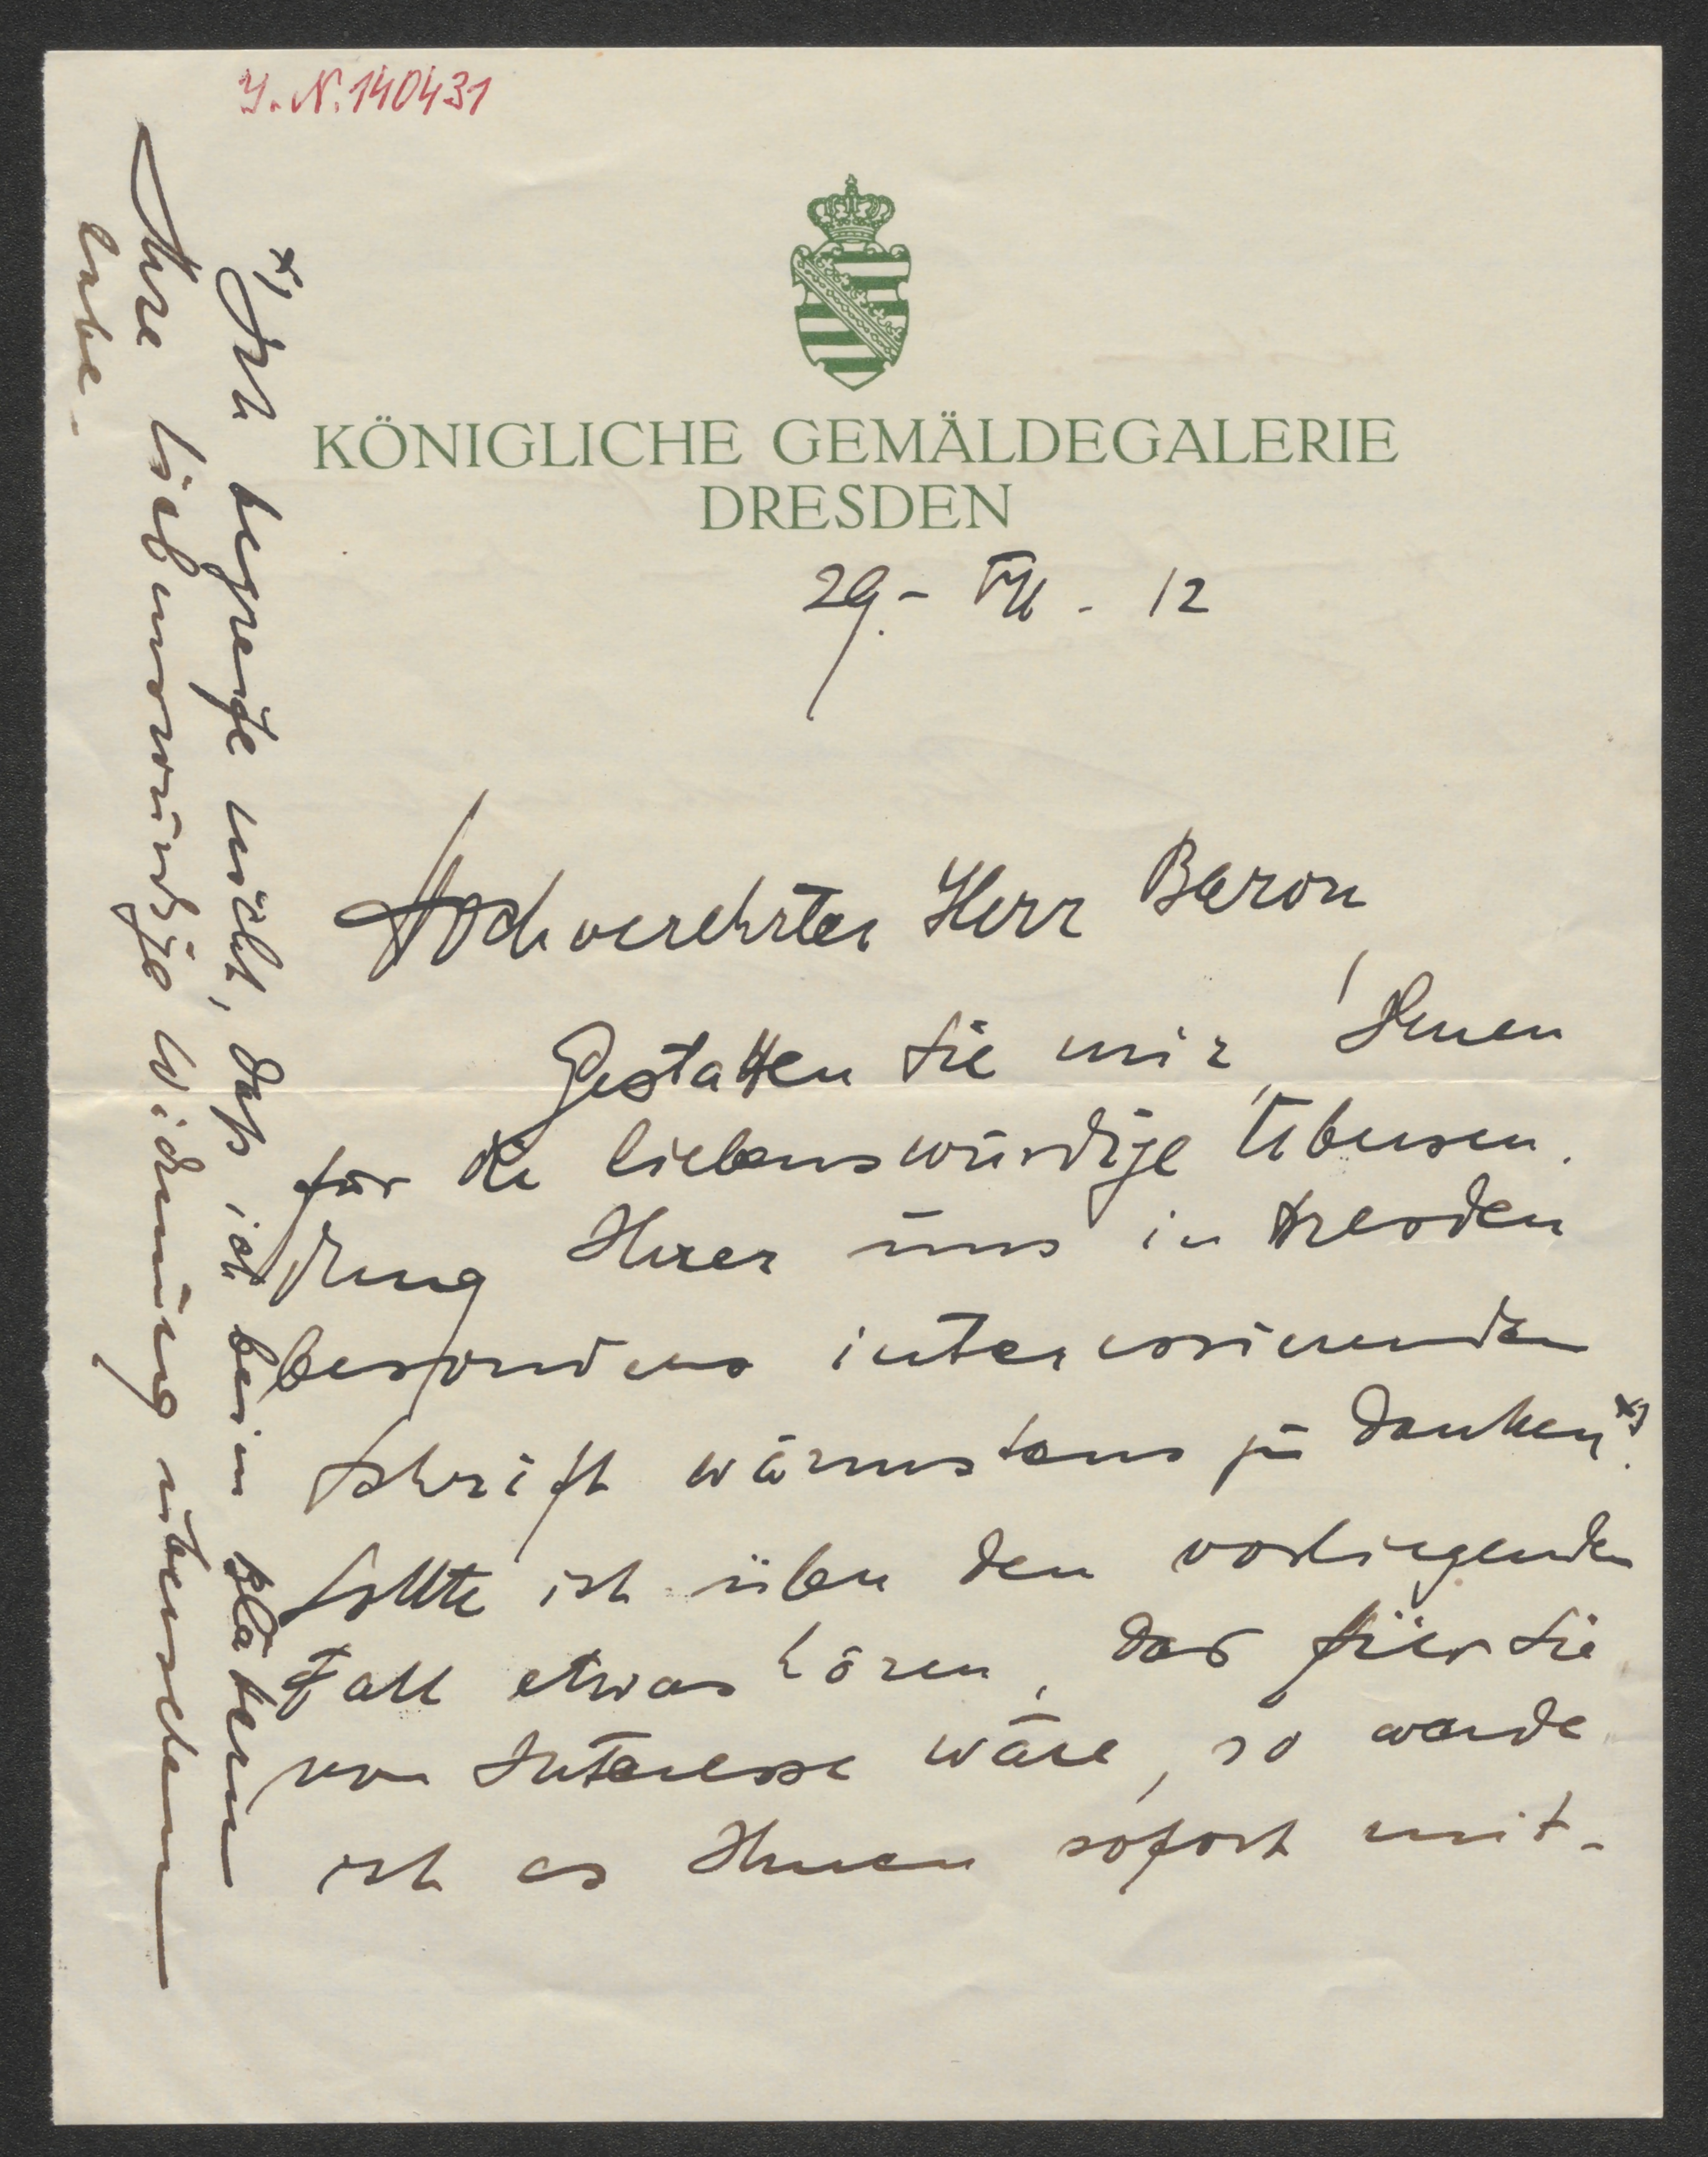 J. N. 140431
KÖNIGLICHE GEMÄLDEGALERIE
DRESDEN
29. - VII - 12
Hochverehrter Herr Baron
Gestatten Sie mir, Ihnen
für die liebenswürdige Übersen-
dung Ihrer uns in Dresden
besonders interessierenden
Schrift wärmstens zu danken x).
Sollte ich über den vorliegenden
Fall etwas hören, das für Sie
von Interesse wäre, so werde
ich es Ihnen sofort mit-
x) Ich begreife nicht, daß ich beim Blättern
Ihre liebenswürdige Widmung übersehen
habe.